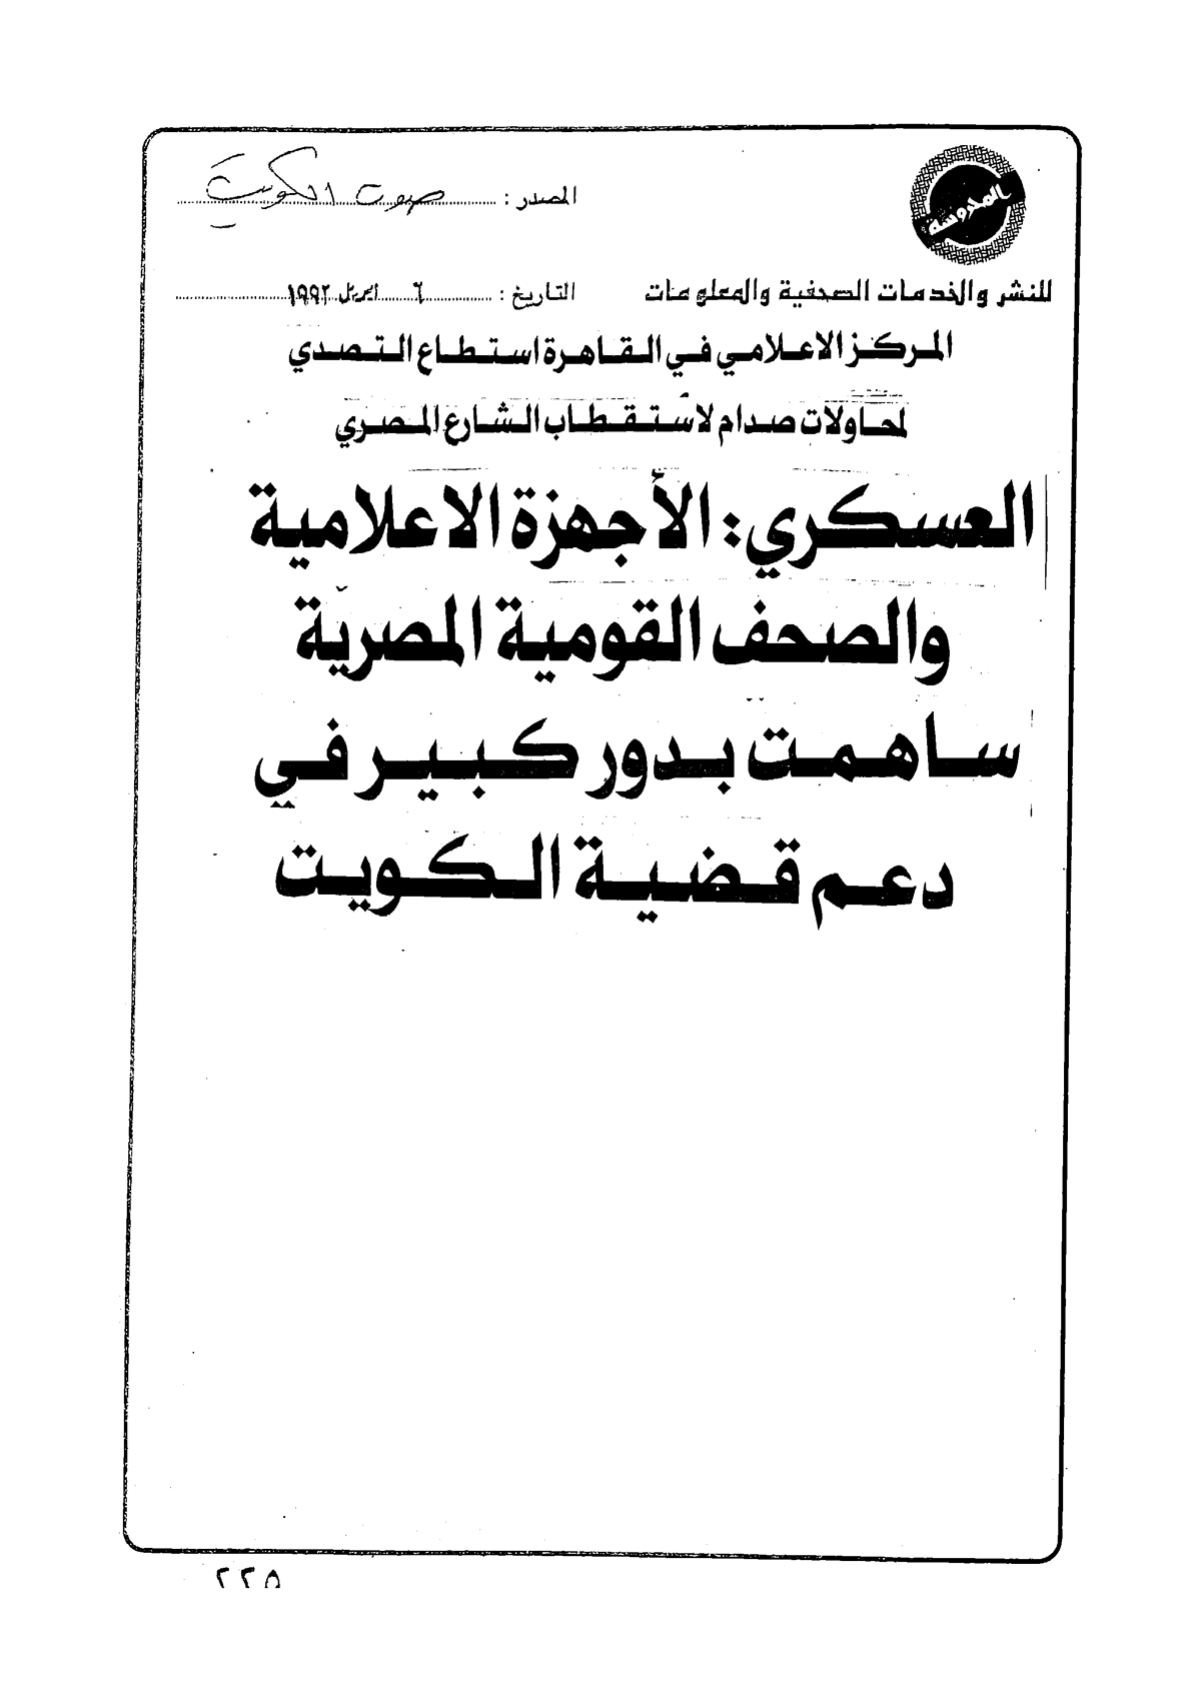 المدروسة
المصدر : صوت الكويت
للنشر والخدمات الصحفية والمعلومات
التاريخ : ٦ ابريل ١٩٩٢
المركز الاعلامي في القاهرة استطاع التصدي
لمحاولات صدام لاستقطاب الشارع المصري
العسكري: الأجهزة الاعلامية
والصحف القومية المصرية
ساهمت بدور كبير في
دعم قضية الكويت
٢٢٥